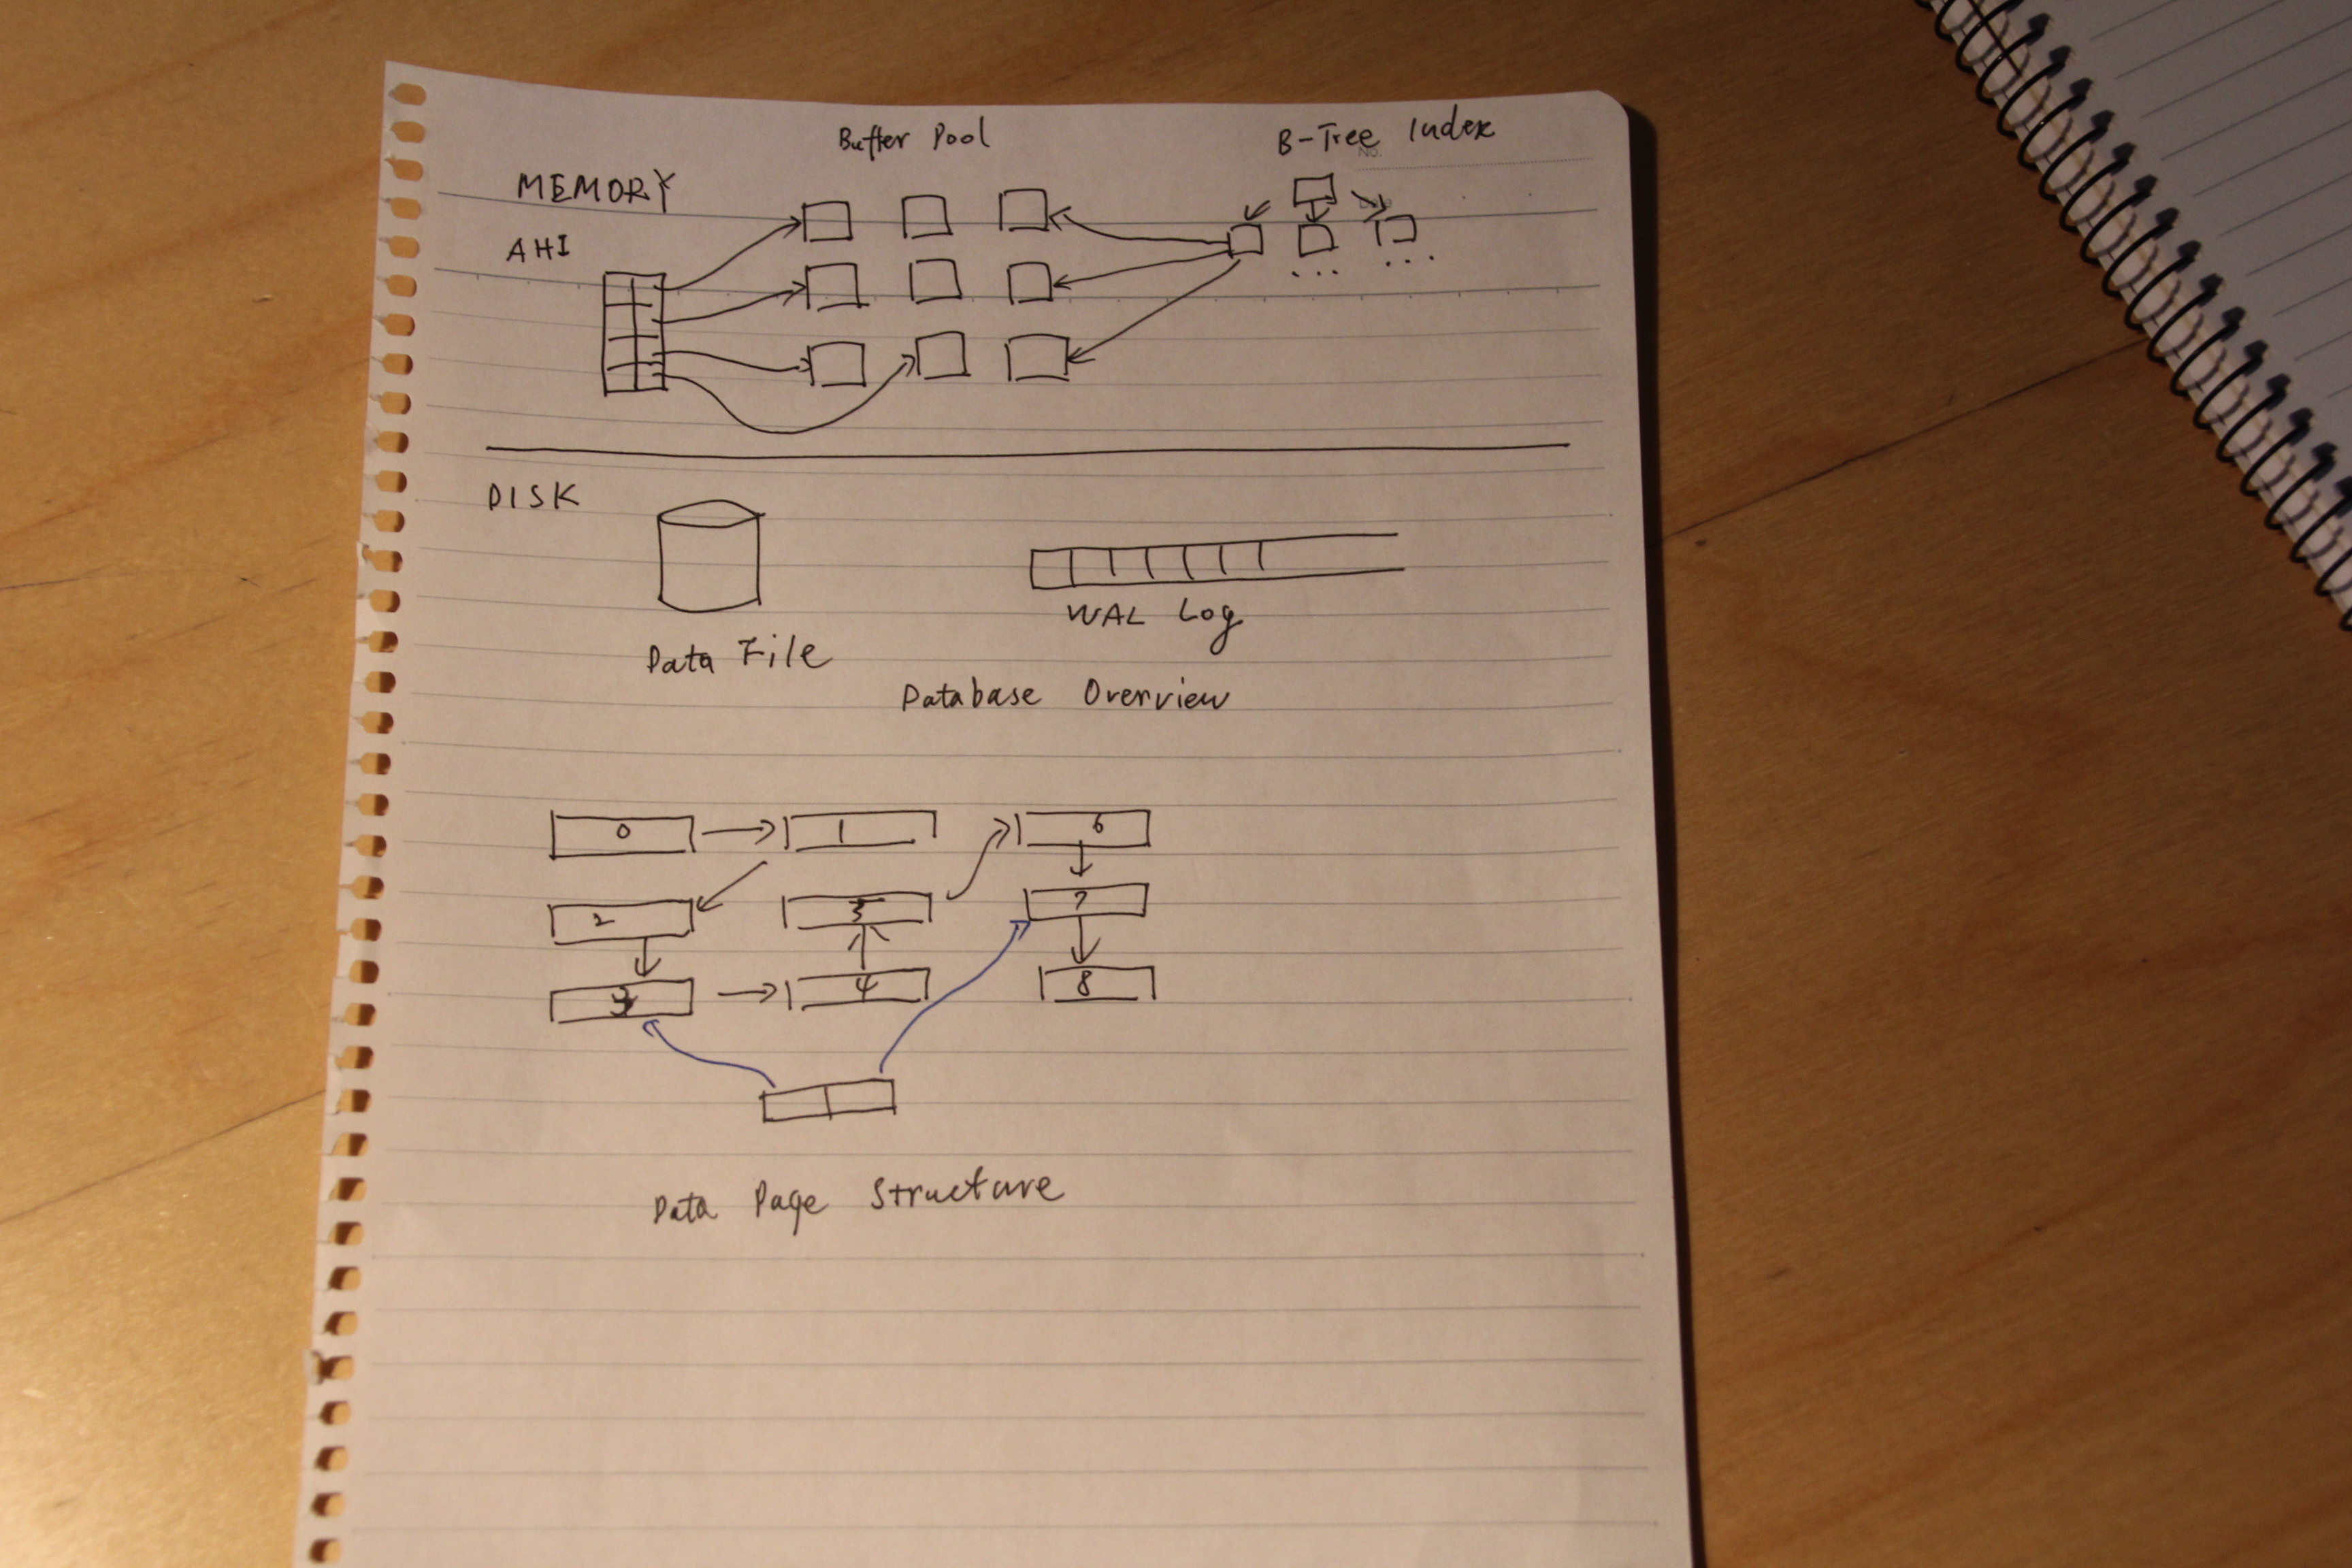 Buffer Pool
B-Tree Index
No.
MEMORY
AHI
... ...
DISK
WAL Log
Data File
Database Overview
0 1 6
2 5 7
3 4 8
Data Page Structure